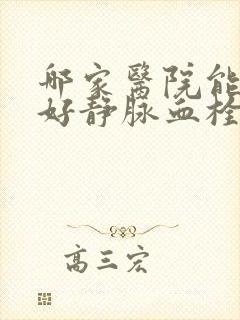 哪家醫院能
好靜脈血栓
高三宏